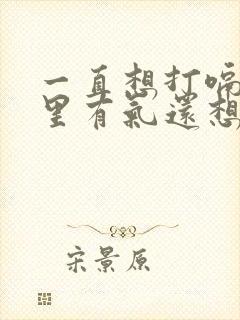 一直想打嗝
里有氣還想
宋景原